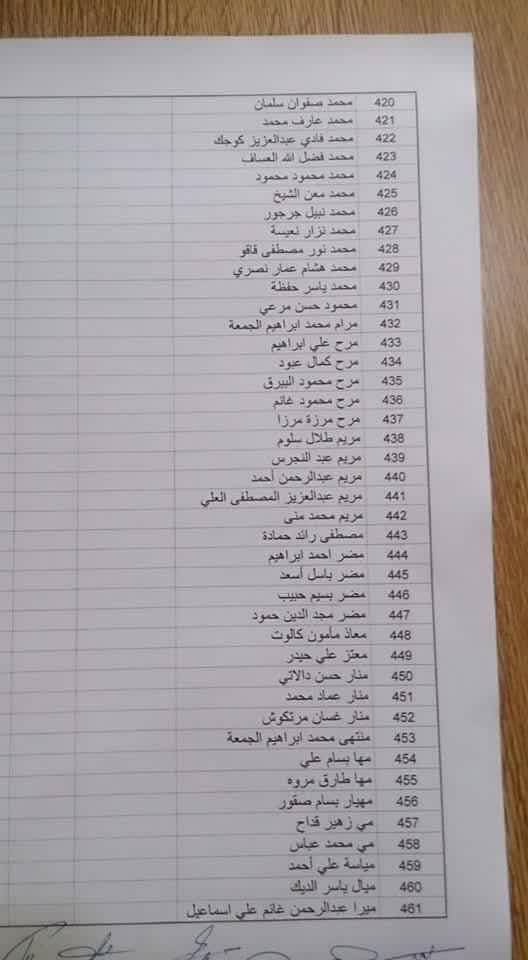 420 محمد صفوان سلمان
421 محمد عارف محمد
422 محمد فادي عبدالعزيز كوجك
423 محمد فضل الله العساف
424 محمد محمود محمود
425 محمد معن الشيخ
426 محمد نبيل جرجور
427 محمد نزار نعيسة
428 محمد نور مصطفى قاقو
429 محمد هشام عمار نصري
430 محمد ياسر حفظة
431 محمود حسن مرعي
432 مرام محمد ابراهيم الجمعة
433 مرح علي ابراهيم
434 مرح كمال عبود
435 مرح محمود البيرق
436 مرح محمود غانم
437 مرح مرزة مرزا
438 مريم طلال سلوم
439 مريم عبد النجرس
440 مريم عبدالرحمن أحمد
441 مريم عبدالعزيز المصطفى العلي
442 مريم محمد منى
443 مصطفى رائد حمادة
444 مضر احمد ابراهيم
445 مضر باسل أسعد
446 مضر بسيم حبيب
447 مضر مجد الدين حمود
448 معاذ مأمون كالوت
449 معتز علي حيدر
450 منار حسن دالاتي
451 منار عماد محمد
452 منار غسان مرتكوش
453 منتهى محمد ابراهيم الجمعة
454 مها بسام علي
455 مها طارق مروه
456 مهيار بسام صقور
457 مي زهير قداح
458 مي محمد عباس
459 مياسة علي أحمد
460 ميال ياسر الديك
461 ميرا عبدالرحمن غانم علي اسماعيل